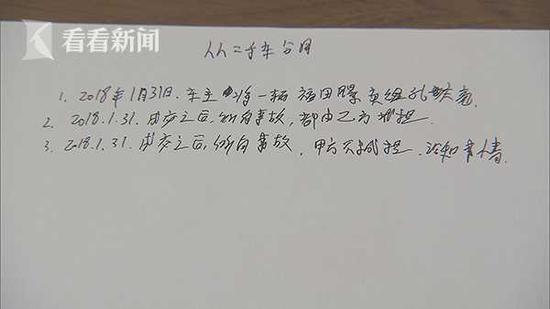 看看新闻
二手车合同
1. 2018年1月31日. 车主 将一辆福田 卖给孔
2. 2018.1.31. 成交之后, 所有事故, 都由乙方承担.
3. 2018.1.31. 成交之后, 所有事故, 甲方不承担.